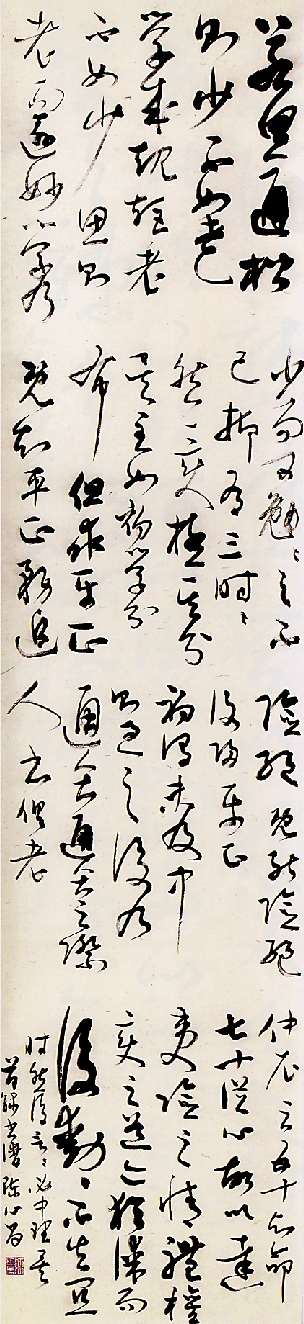 若思通楷
則少不如老
學成規矩老
不如少思則
老而逾妙學乃
少而可勉〻之不
已抑有三時〻
然一變極其分
矣至如初學分
布但求平正
既知平正務追
險絕既能險絕
復歸平正
初謂未及中
則過之後乃
通會通會之際
人書俱老
仲尼云五十知命
七十從心故以達
夷險之情體權
變之道亦猶謀而
後動〻不失宜
時然後言〻必中理矣
書譜